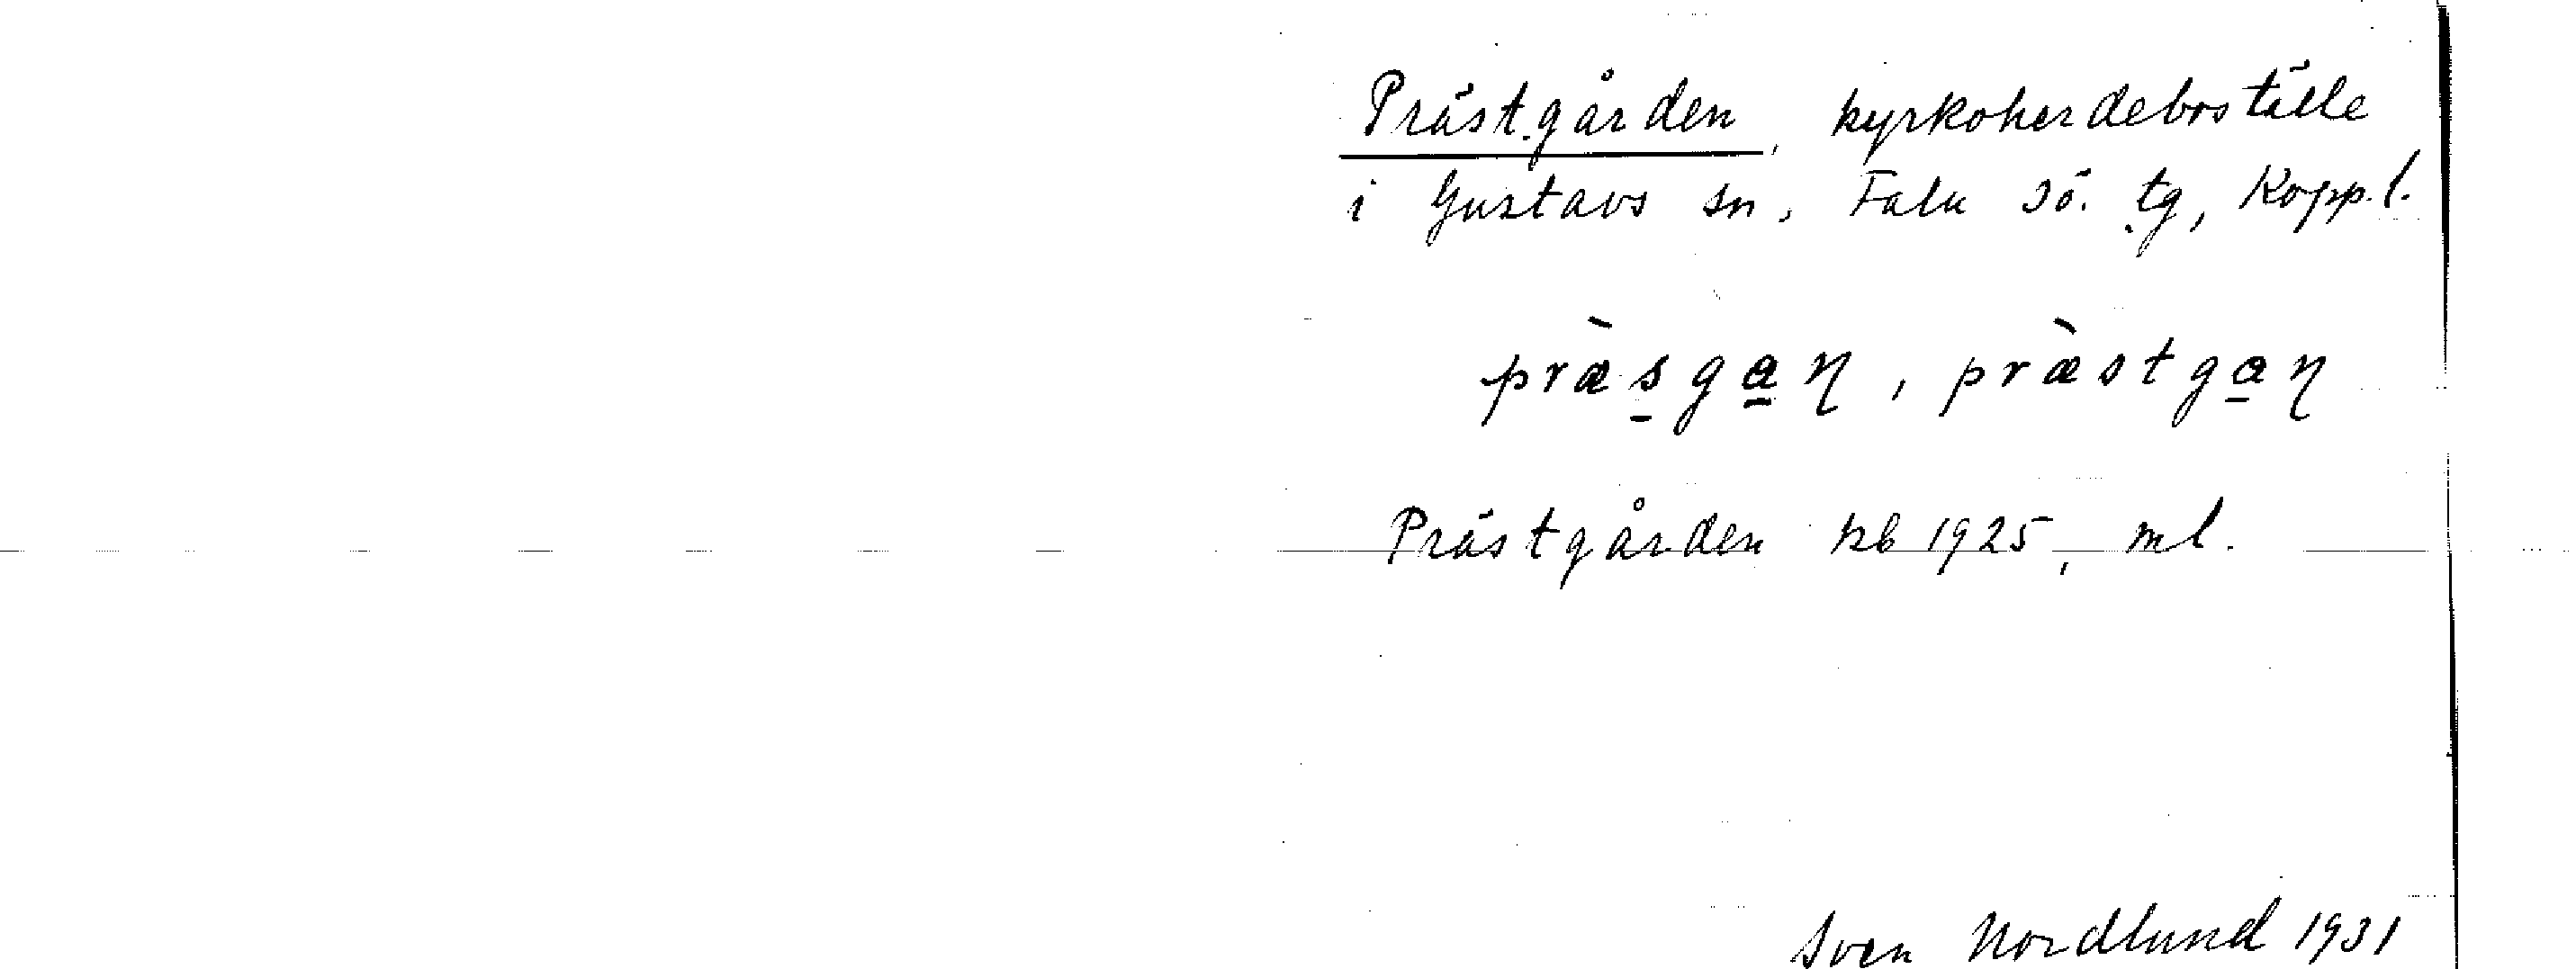 Prästgården, kyrkoherdeboställe
i Gustavs sn, Falu sö. tg, Kopp. l.
præ̀s̠ga̠η, præ̀stga̠η
Prästgården kb 1925, ml.
Sven Nordlund 1931